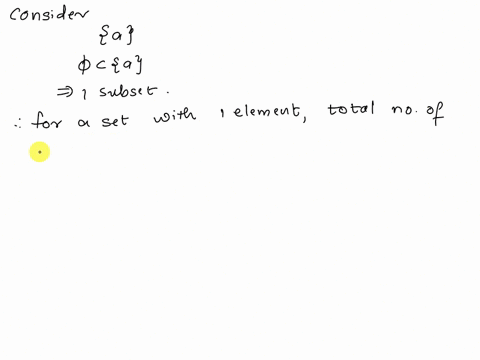 Consider
{a}
ϕ ⊂ {a}
⇒ 1 subset.
∴ for a set with 1 element, total no. of